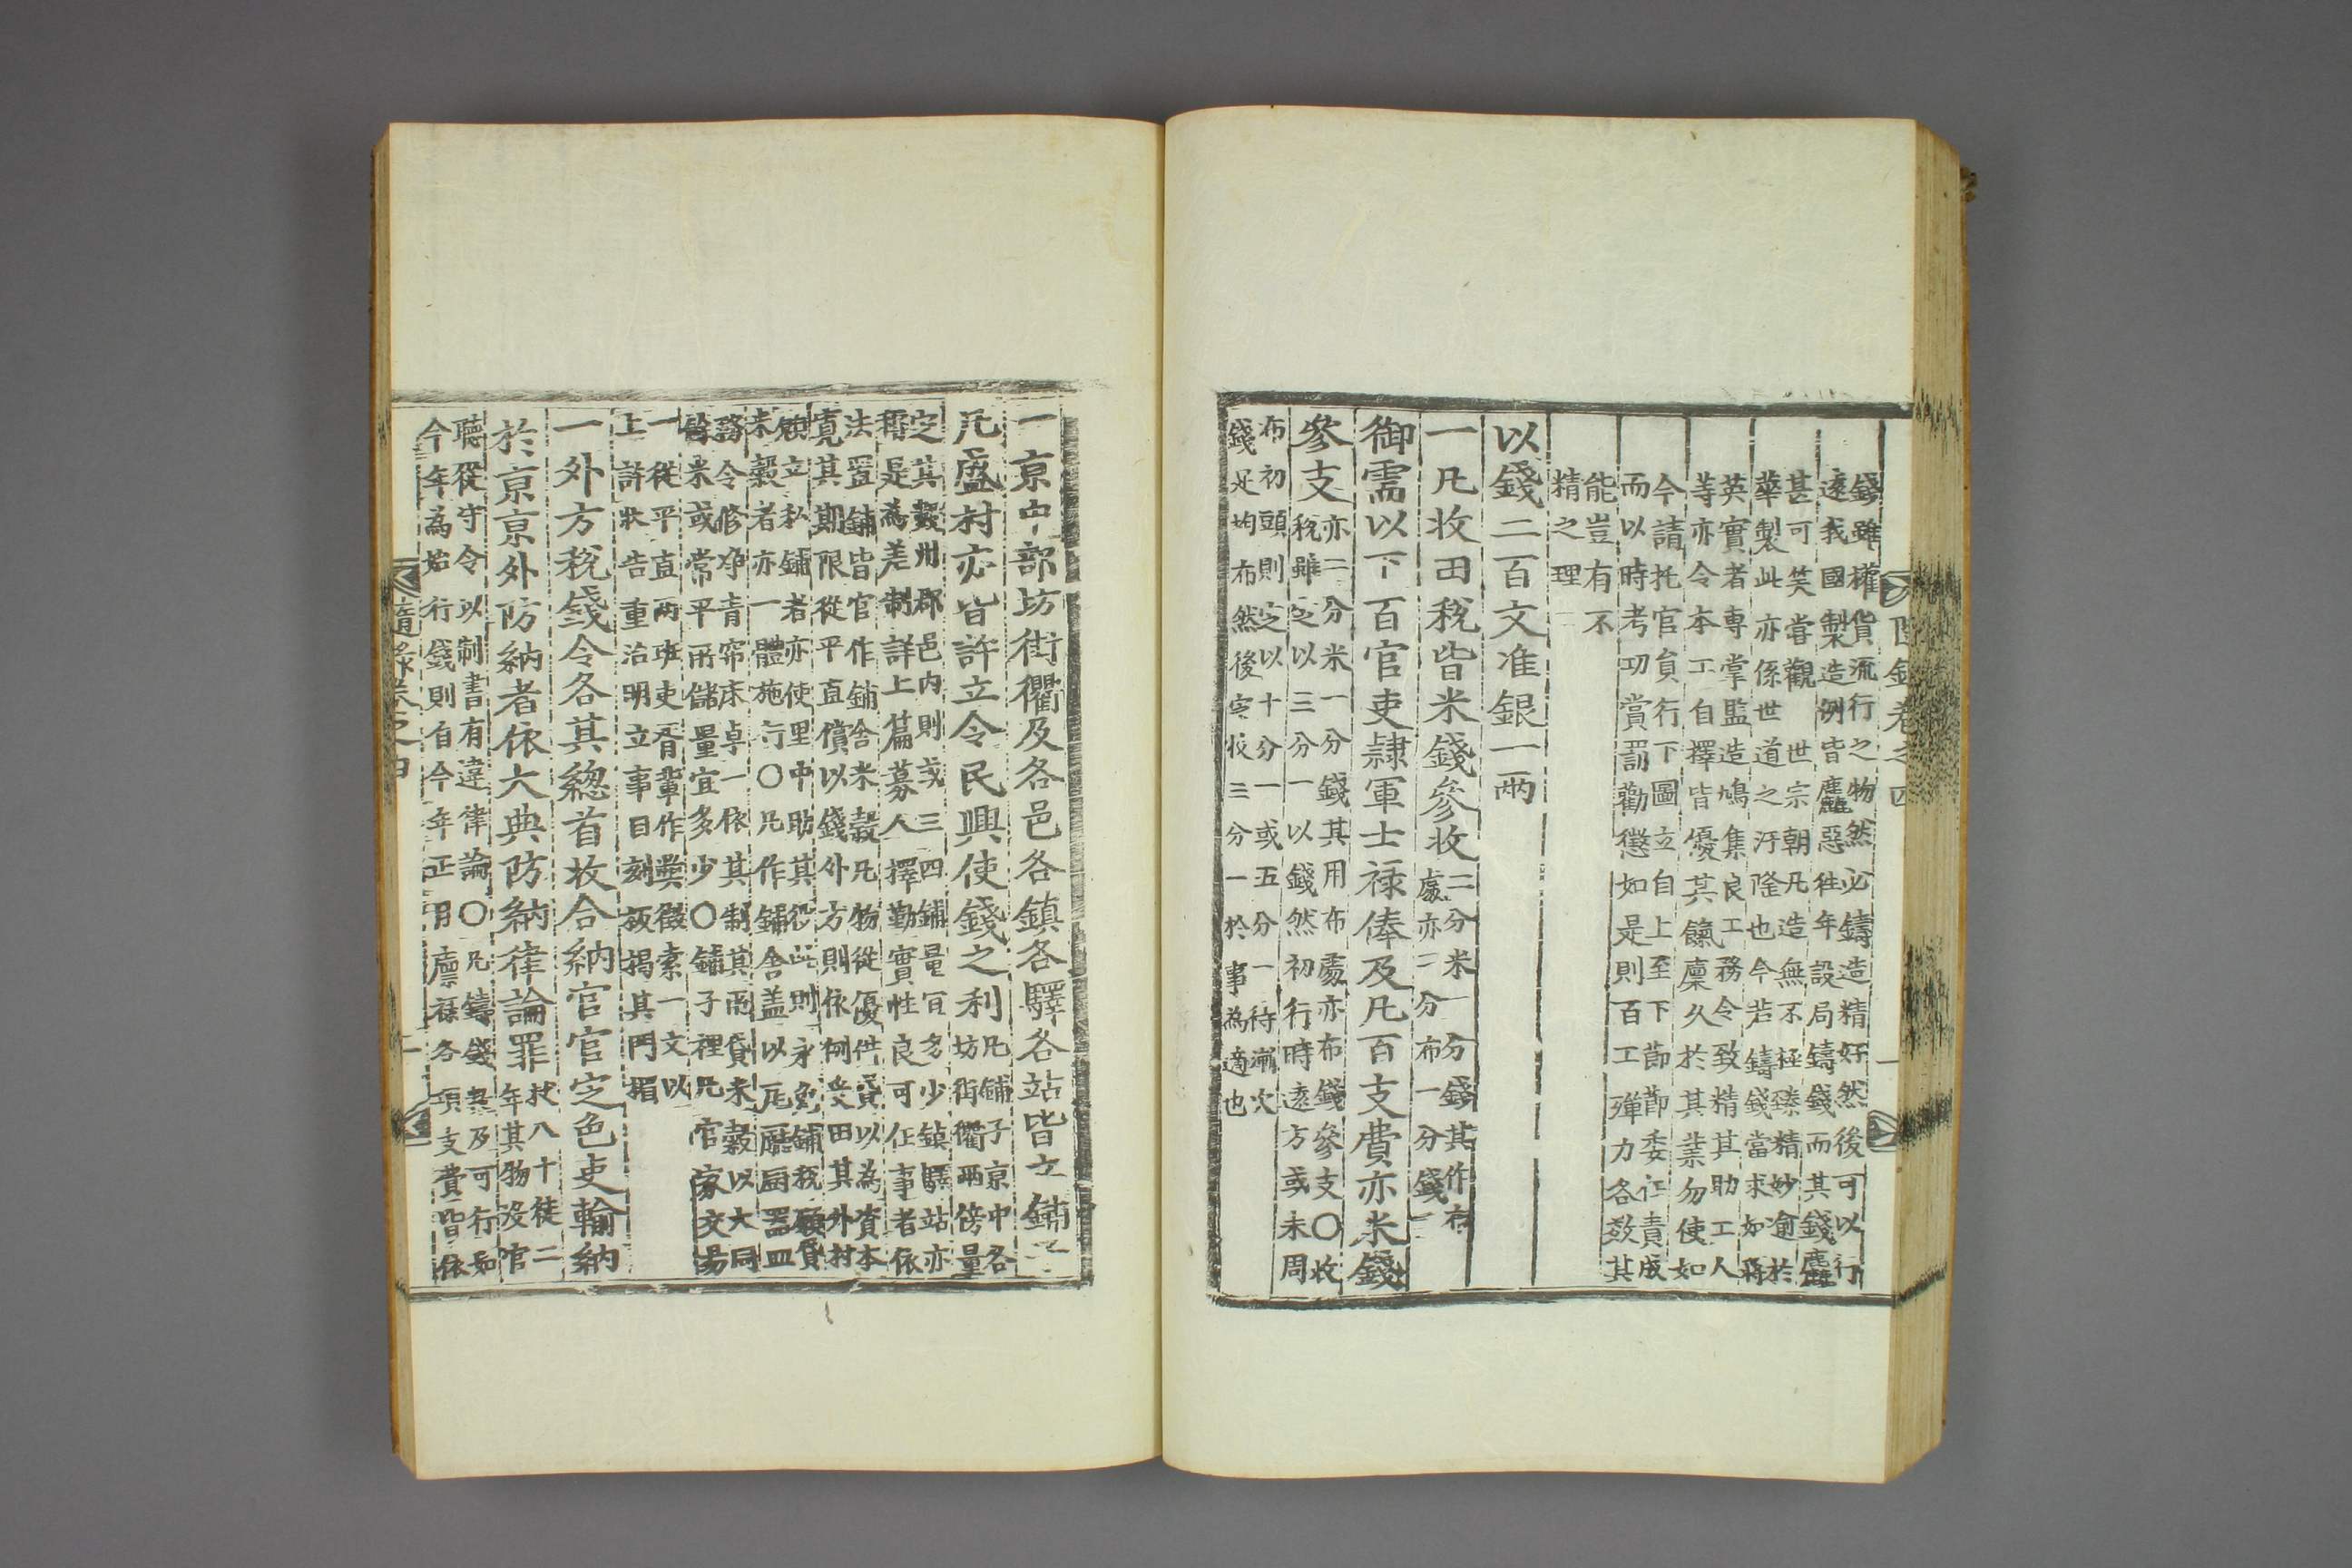 錢雖權貨流行之物然必鑄造精好然後可以行
遠我國製造例皆麤惡往年設局鑄錢而其錢麤
甚可笑嘗觀 世宗朝凡造無不極臻精妙逾於
華製此亦係世道之汙隆也今若鑄錢當求如蔣
英實者專掌監造鳩集良工務令致精其助工人
等亦令本工自擇皆優其餼廩久於其業勿使如
今請托官負行下圖立自上至下節節委任責成
而以時考功賞罰勸懲如是則百工殫力各效其
能豈有不
精之理
以錢二百文准銀一兩
一凡收田稅皆米錢參收
二分米一分錢其作布
處亦二分布一分錢
御需以下百官吏隸軍士祿俸及凡百支費亦米錢
參支
亦二分米一分錢其用布處亦布錢參支○收
稅雖定以三分一以錢然初行時遠方或未周
布初頭則定以十分一或五分一待漸次
錢足均布然後定收三分一於事為適也
隨錄卷之四
一
一京中部坊街衢及各邑各鎮各驛各站皆立鋪子
凡盛村亦皆許立令民興使錢之利
凡鋪子京中各
坊街衢兩傍量
定其數州郡邑内則或三四鋪量宜多少鎮驛站亦
稱是為差制詳上篇募人擇勤實性良可任事者依
法置鋪皆官作鋪舍米穀凡物從優供貸以為資本
寬其期限從平直償以錢外方則依例受田其外村
願立私鋪者亦使里中助其役此則永免鋪稅願貸
米穀者亦一體施行○凡作鋪舍盖以瓦廳厨器皿
務令修净青帘床卓一依其制其所貸米穀以大同
餘米或常平所儲量宜多少○鋪子裡凡官家交易
一從平直兩班吏胥輩作弊徵索一文以
上許狀告重治明立事目刻板揭其門楣
一外方稅錢令各其總首收合納官官定色吏輸納
於京京外防納者依大典防納律論罪
杖八十徒二
年其物沒官
聽從守令以制書有違律論○凡鑄錢畢及可行如
今年為始行錢則自今年正月廩祿各項支費皆依
隨錄卷之四
二